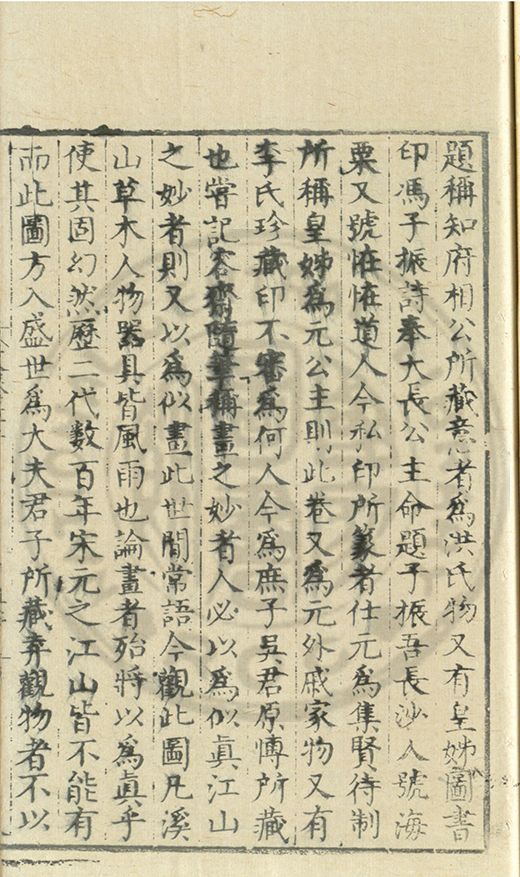 題稱知府相公所藏意者為洪氏物又有皇姊圖書
印馮子振詩奉大長公主命題子振吾長沙人號海
粟又號恠恠道人今私印所篆者仕元為集賢待制
所稱皇姊為元公主則此卷又為元外戚家物又有
李氏珍藏印不審為何人今為庶子吳君原博所藏
也嘗記容齋隨筆稱畫之妙者人必以為似真江山
之妙者則又以為似畫此世間常語今觀此圖凡溪
山草木人物器具皆風雨也論畫者殆將以為真乎
使其固幻然歷二代数百年宋元之江山皆不能有
而此圖方入盛世為大夫君子所藏弆觀物者不以